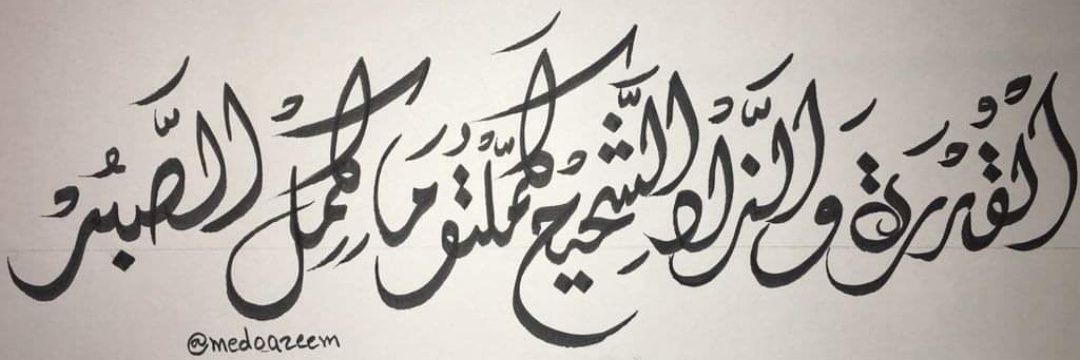 القدرة والزاد الشحيح كملتو ما كمل الصبر
@medoazeem